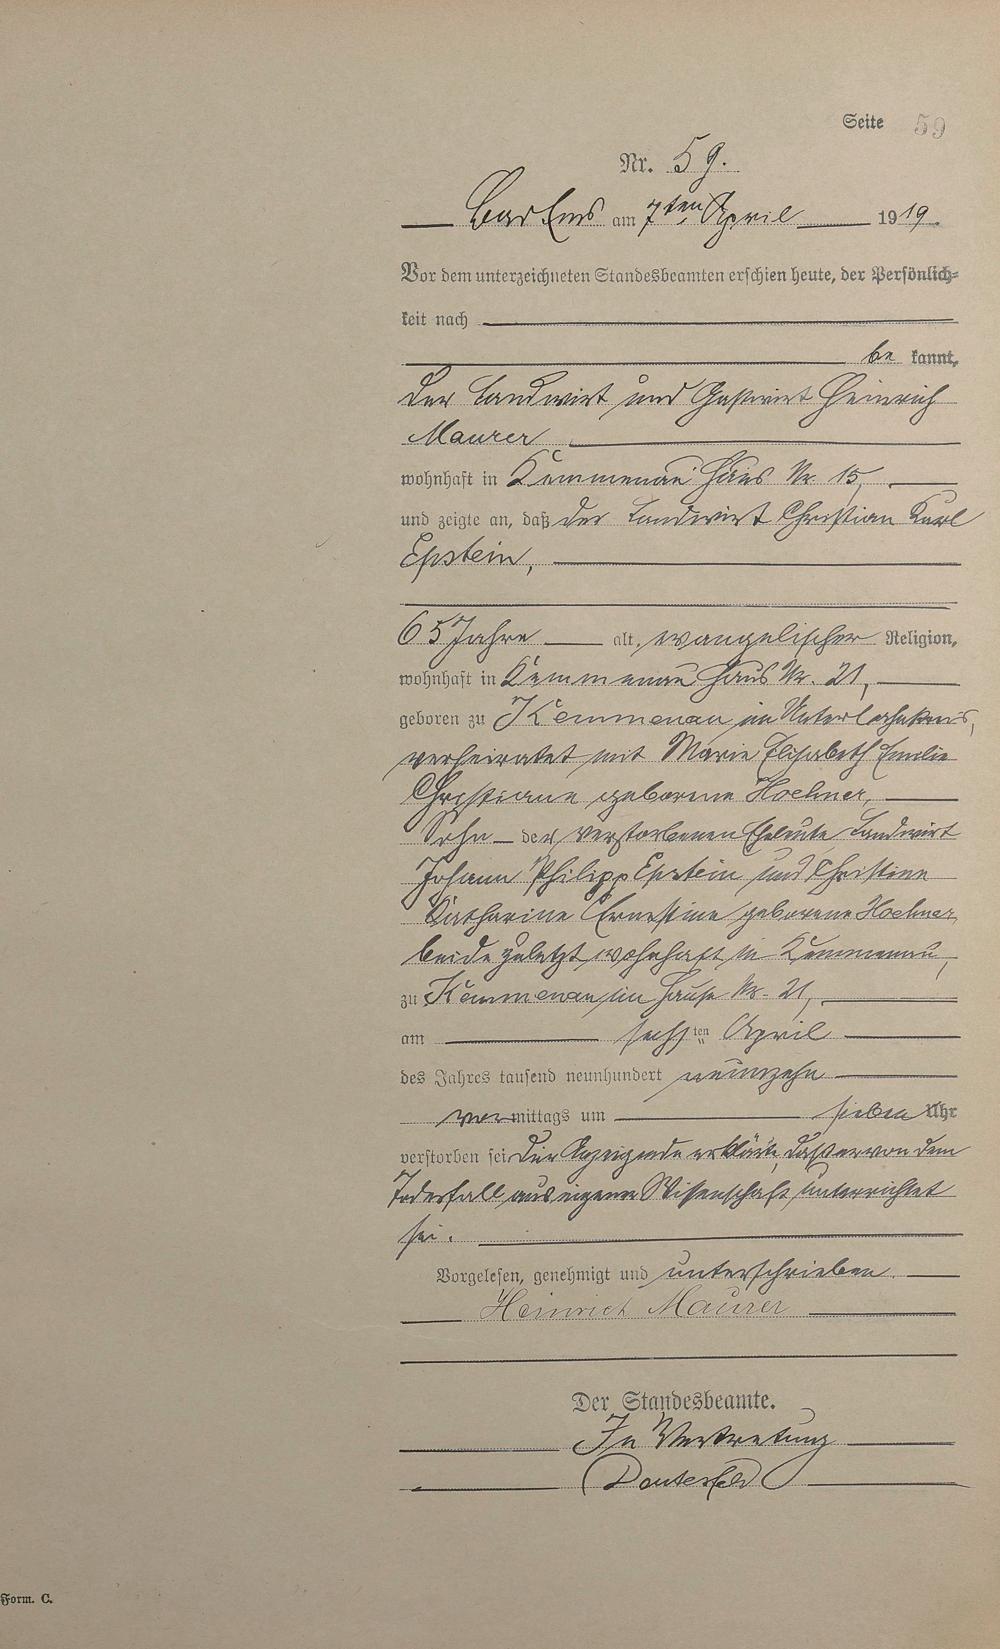 Seite 59
Nr. 59.
Bad Ems am 7ten April 1919.
Vor dem unterzeichneten Standesbeamten erschien heute, der Persönlich-
keit nach
be kannt,
der Landwirt und Gastwirt Heinrich
Maurer
wohnhaft in Kemmenau Haus Nr. 15,
und zeigte an, daß der Landwirt Christian Karl
Epstein,
65 Jahre alt, evangelischer Religion,
wohnhaft in Kemmenau Haus Nr. 21,
geboren zu Kemmenau im Unterlahnkreis,
verheiratet mit Marie Elisabeth Emilie
Christiane geborene Hoehner,
Sohn der verstorbenen Eheleute Landwirt
Johann Philipp Epstein und Christine
Katharine Ernestine geborene Hoehner
beide zuletzt wohnhaft in Kemmenau,
zu Kemmenau im Hause Nr. 21,
am sechsten April
des Jahres tausend neunhundert neunzehn
vormittags um sieben Uhr
verstorben sei. Der Anzeigende erklärte, daß er von dem
Todesfall aus eigener Wissenschaft unterrichtet
sei.
Vorgelesen, genehmigt und unterschrieben
Heinrich Maurer
Der Standesbeamte.
In Vertretung
Form. C.